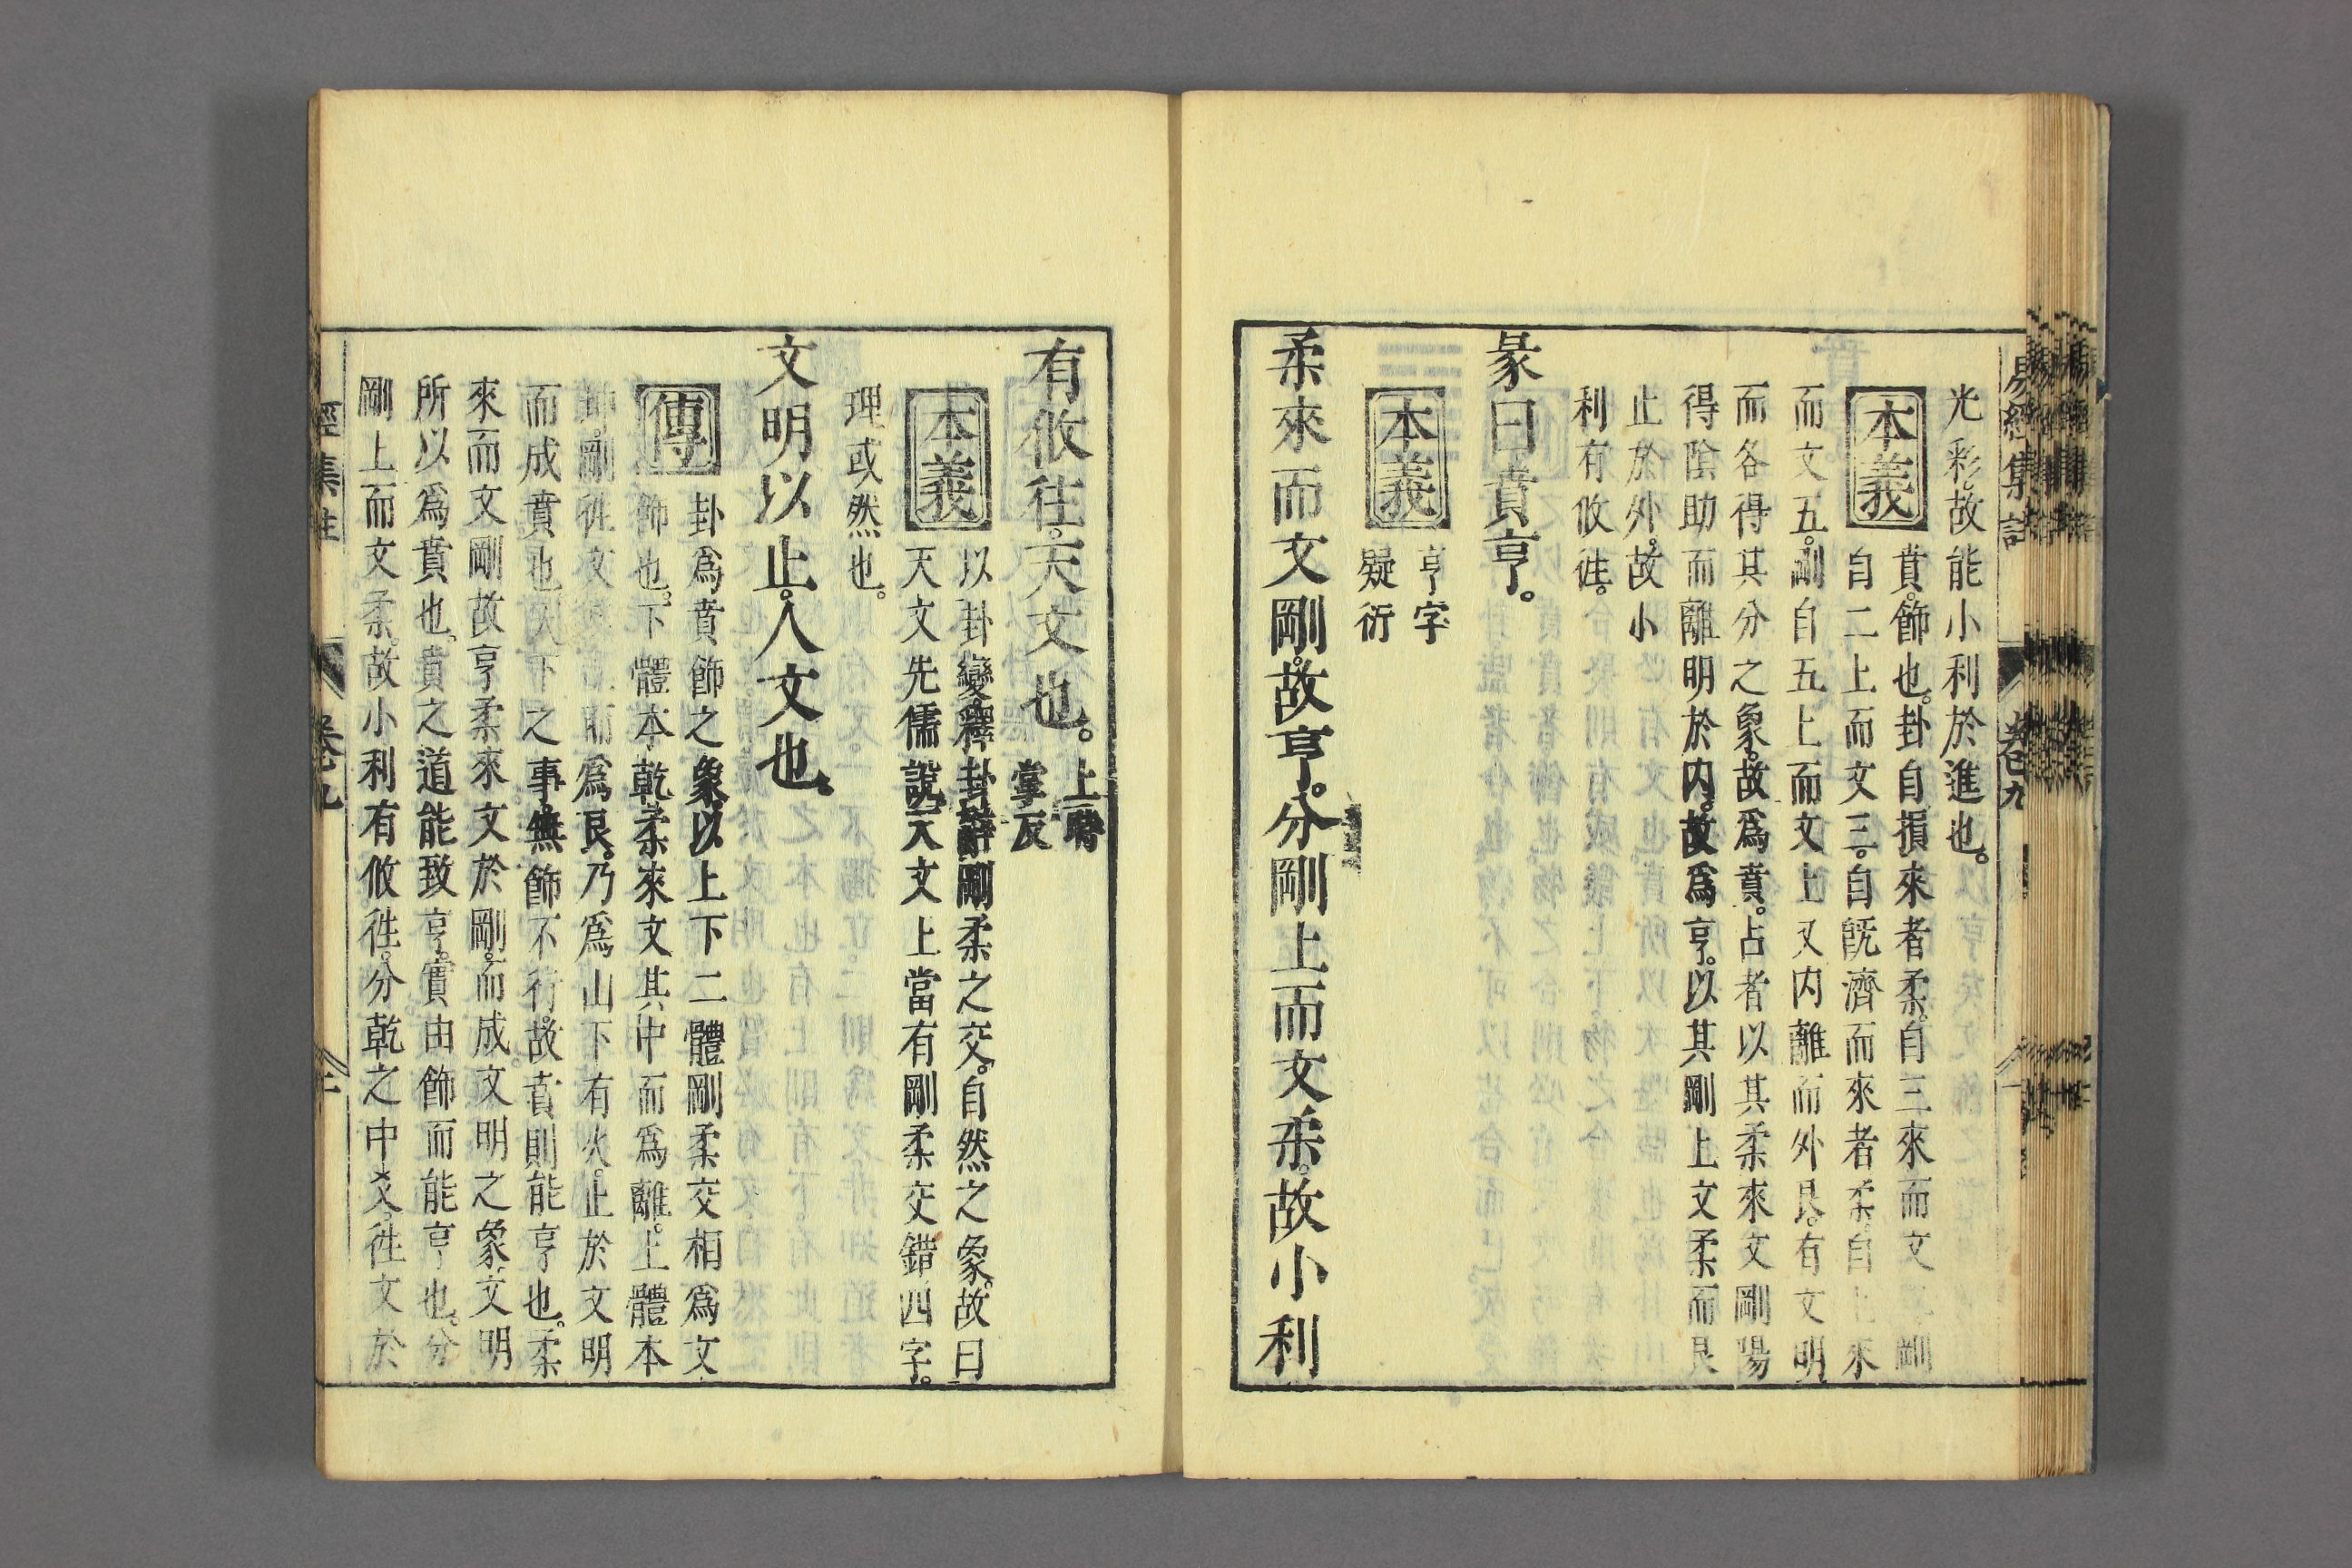 易經集註 卷九
光彩。故能小利於進也。
本義
賁。飾也。卦自損來者柔。自三來而文二剛
自二上而文三。自旣濟而來者柔。自上來
而文五。剛自五上而文上又内離而外艮。有文明
而各得其分之象。故爲賁。占者以其柔來文剛陽
得陰助而離明於内。故爲亨。以其剛上文柔而艮
止於外。故小
利有攸徃。
彖曰賁亨。
本義
亨字
疑衍
柔來而文剛。故亨。分剛上而文柔。故小利
有攸徃。天文也。
上時
掌反
本義
以卦變釋卦辭剛柔之交。自然之象。故曰
天文先儒說天文上當有剛柔交錯四字。
理或然也。
文明以止。人文也。
傳
卦爲賁飾之象以上下二體剛柔交相爲文
飾也。下體本乾柔來文其中而爲離。上體本
剛徃文 而爲艮。乃爲山下有火。止於文明
而成賁也天下之事。無飾不行。故賁則能亨也。柔
來而文剛故亨柔來文於剛。而成文明之象文明
所以爲賁也。賁之道能致亨。實由飾而能亨也。分
剛上而文柔。故小利有攸徃。分乾之中爻。徃文於
經集註 卷九